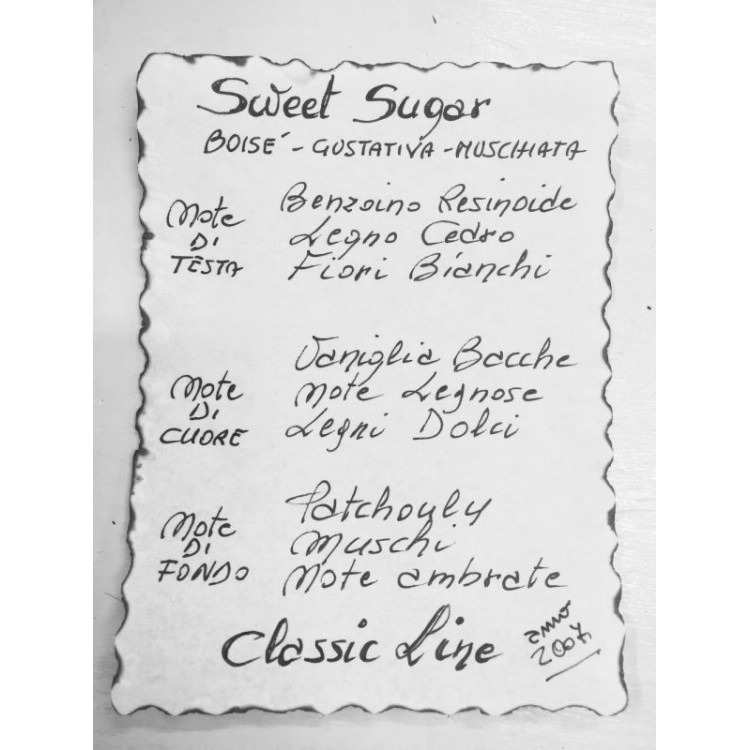 Sweet Sugar
BOISÉ - GUSTATIVA - MUSCHIATA
Note DI TESTA
Benzoino Resinoide
Legno Cedro
Fiori Bianchi
Note DI CUORE
Vaniglia Bacche
Note Legnose
Legni Dolci
Note DI FONDO
Patchouly
Muschi
Note ambrate
Classic Line
anno
2007